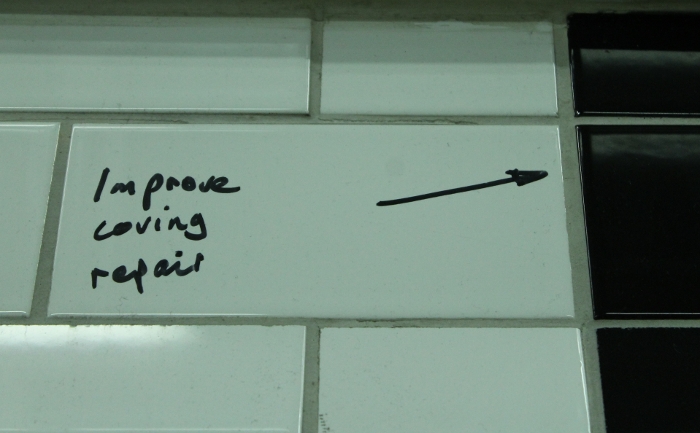 Improve
coving
repair